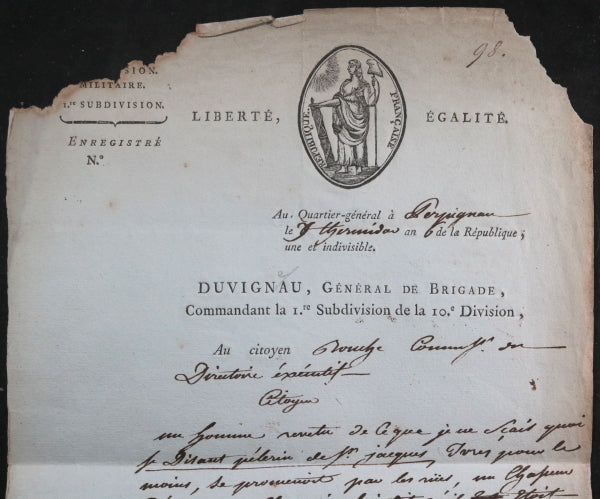 98.
SION.
MILITAIRE.
1.re SUBDIVISION.
ENREGISTRÉ
N.°
LIBERTÉ,
RÉPUBLIQUE FRANÇAISE
ÉGALITÉ.
Au Quartier-général à Perpignan
le thermidor an 6 de la République,
une et indivisible.
DUVIGNAU, GÉNÉRAL DE BRIGADE,
Commandant la 1.re Subdivision de la 10.e Division,
Au citoyen Commiss.re du
Directoire éxécutif
Citoyen
un homme revetu de Ceque je ne Scais quoi
Se Disant pélerin de St. jacques, Ivres pour le
moins, se promenoit par les rües, un Chapeau